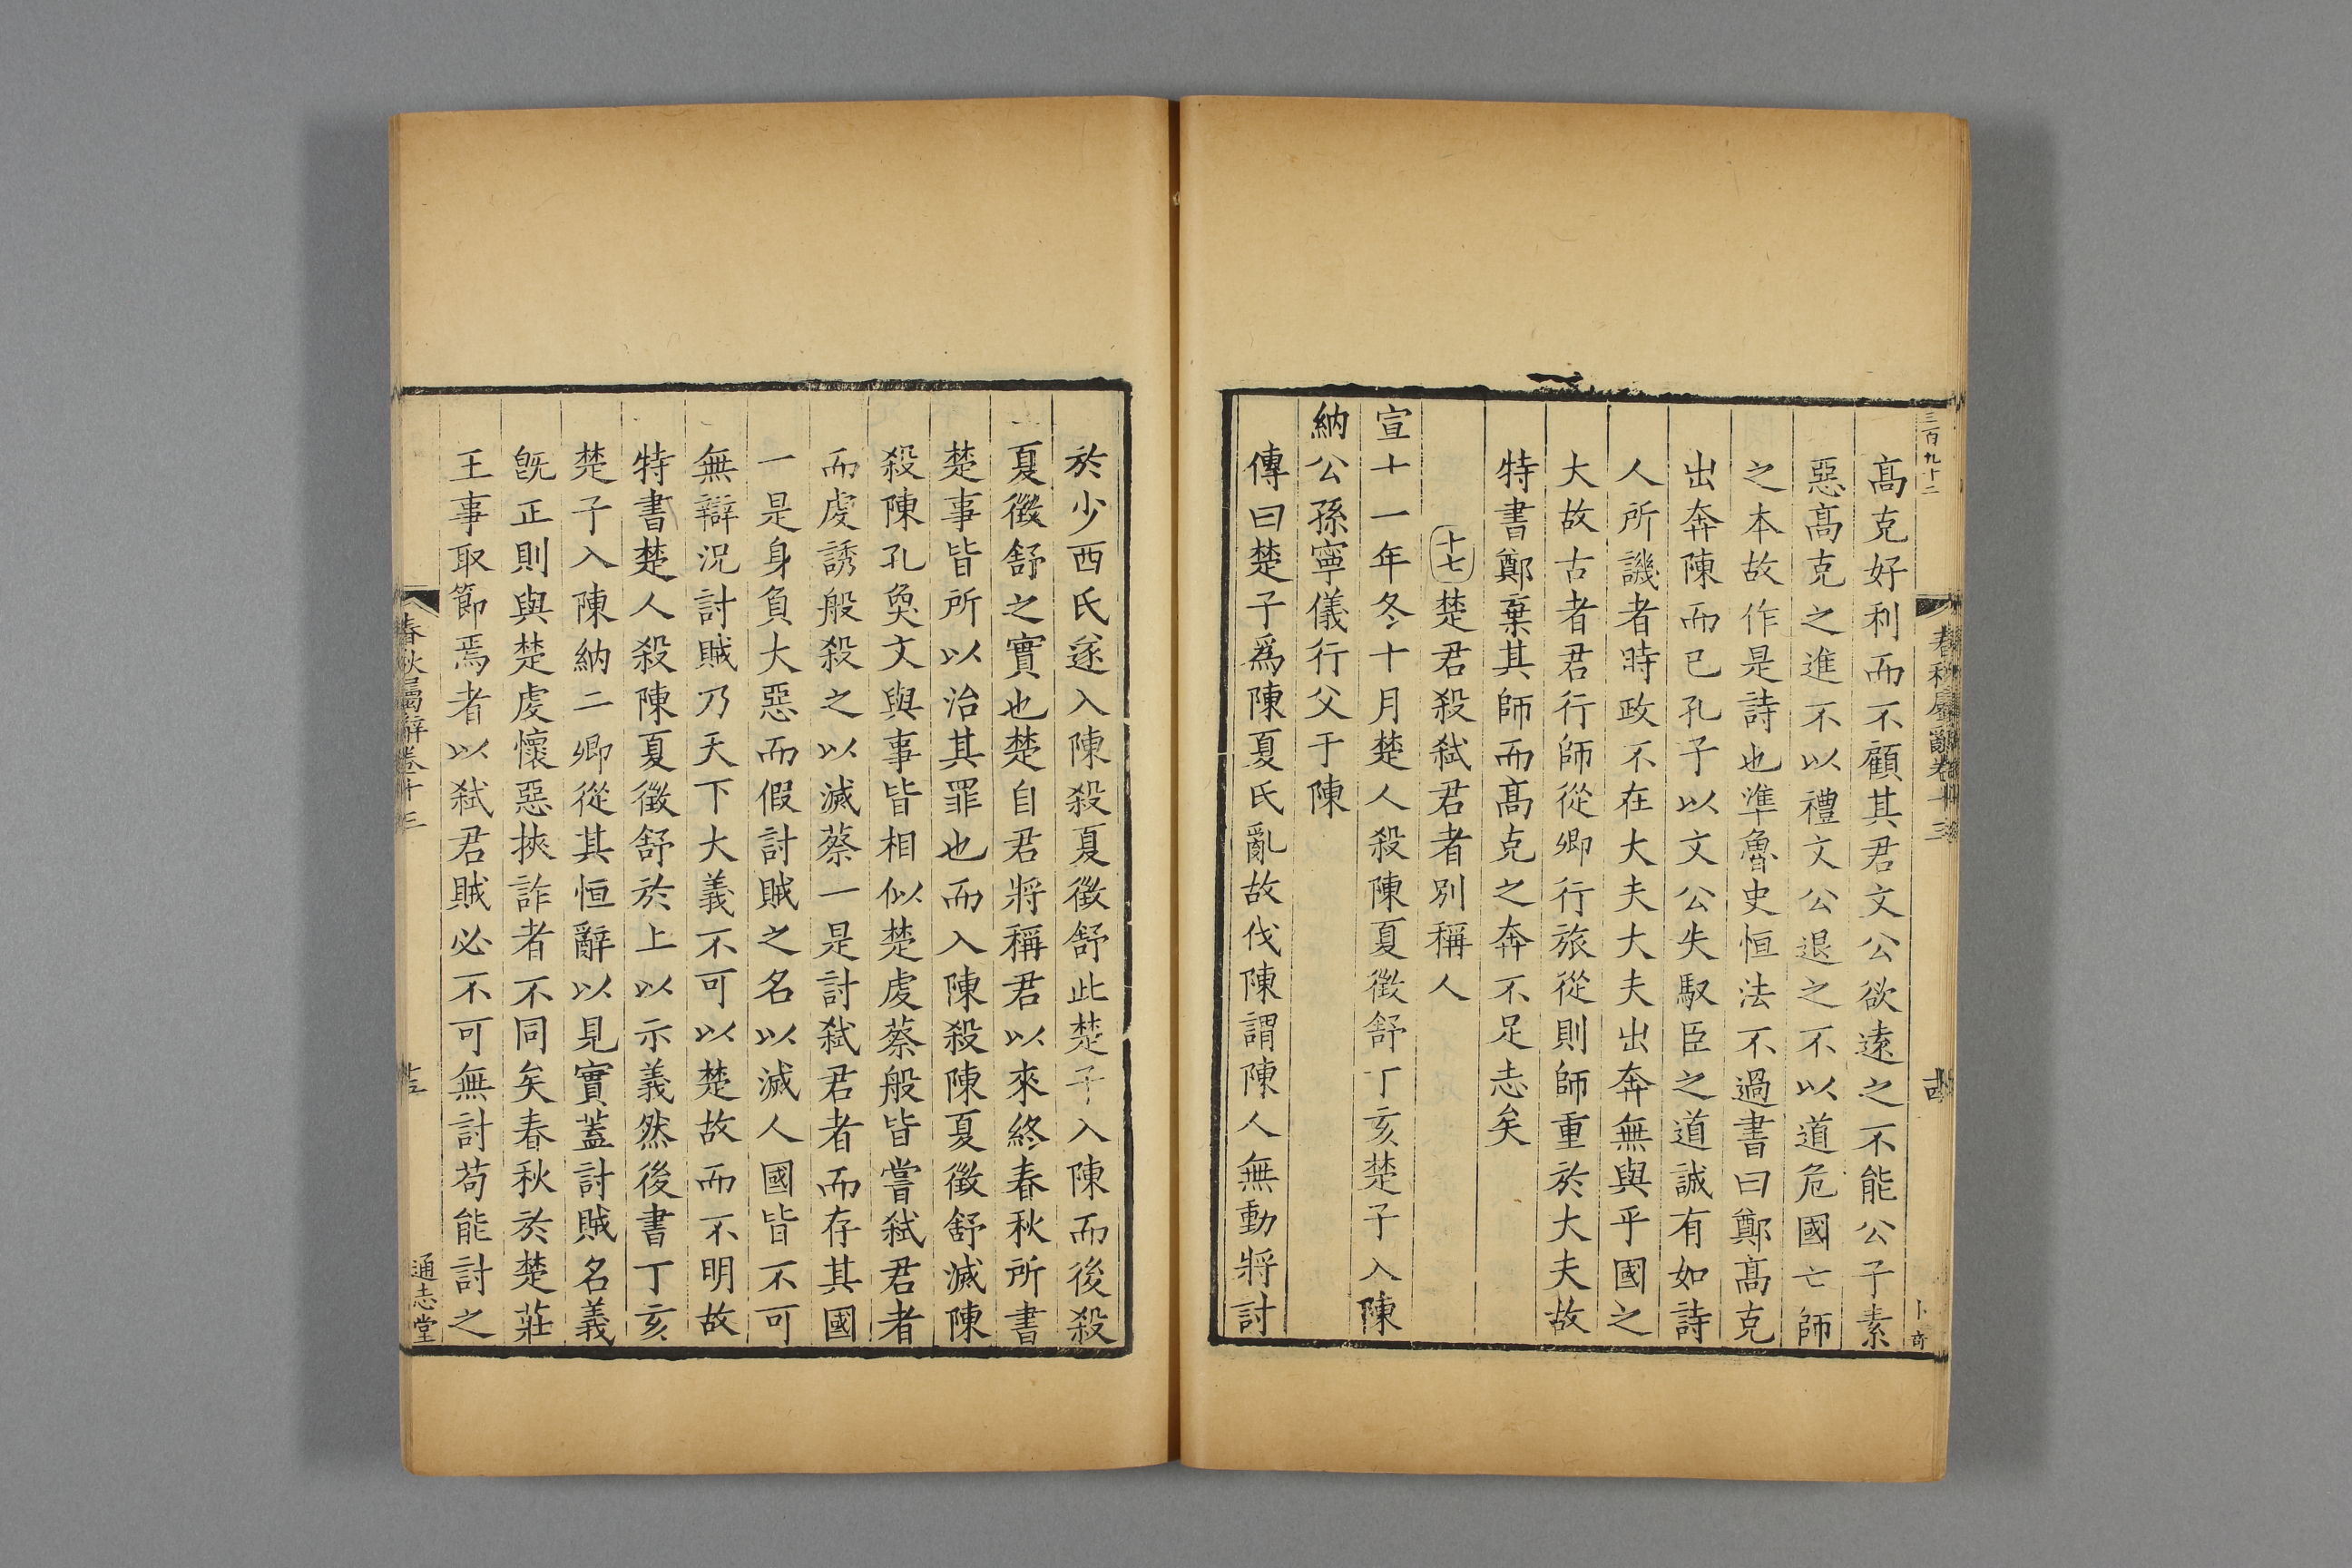 三百九十二
春秋屬辭卷十三
卜奇
高克好利而不顧其君文公欲逺之不能公子素
惡高克之進不以禮文公退之不以道危國亡師
之本故作是詩也凖魯史恒法不過書曰鄭高克
出奔陳而已孔子以文公失馭臣之道誠有如詩
人所譏者時政不在大夫大夫出奔無與乎國之
大故古者君行師從卿行旅從則師重於大夫故
特書鄭棄其師而高克之奔不足志矣
十七楚君殺弑君者別稱人
宣十一年冬十月楚人殺陳夏徵舒丁亥楚子入陳
納公孫寧儀行父于陳
傳曰楚子爲陳夏氏亂故伐陳謂陳人無動將討
於少西氏遂入陳殺夏徵舒此楚子入陳而後殺
夏徵舒之實也楚自君將稱君以來終春秋所書
楚事皆所以治其罪也而入陳殺陳夏徵舒滅陳
殺陳孔奐文與事皆相似楚虔蔡般皆嘗弑君者
而虔誘般殺之以滅蔡一是討弑君者而存其國
一是身負大惡而假討賊之名以滅人國皆不可
無辯況討賊乃天下大義不可以楚故而不明故
特書楚人殺陳夏徵舒於上以示義然後書丁亥
楚子入陳納二卿從其恒辭以見實蓋討賊名義
旣正則與楚虔懷惡挾詐者不同矣春秋於楚莊
王事取節焉者以弑君賊必不可無討苟能討之
春秋屬辭卷十三
通志堂